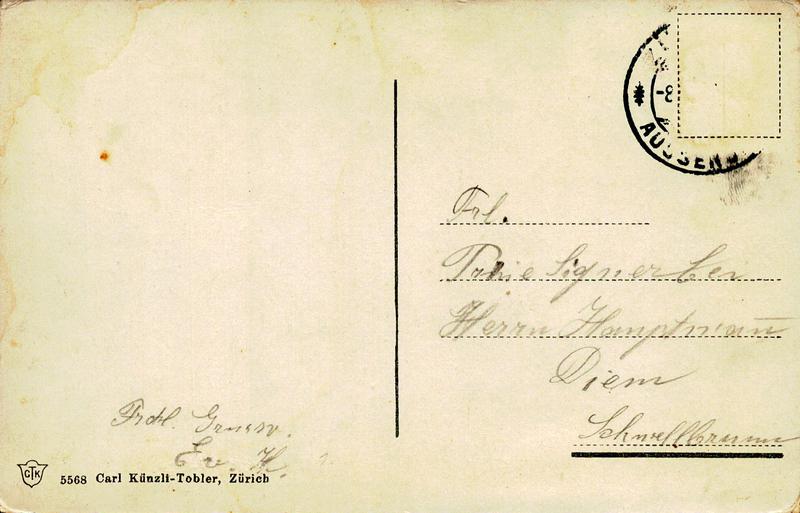 -8
AUSSEN
Frl.
Signer bei
Herrn Hauptmann
Diem
Schwellbrunn
Frdl. Gruss
CTK
5568 Carl Künzli-Tobler, Zürich